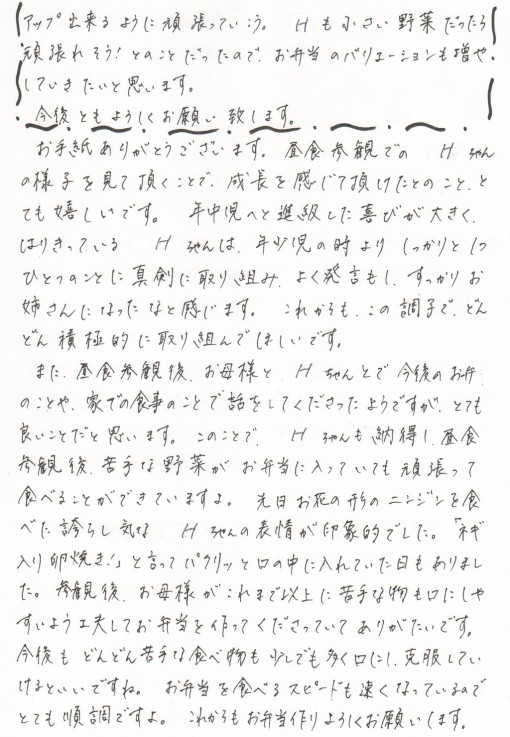 アップ出来るように頑張っていこう。Hも小さい野菜だったら
頑張れそう！とのことだったので、お弁当のバリエーションも増や
していきたいと思います。
今後ともよろしくお願い致します。
お手紙ありがとうございます。昼食参観での Hちゃん
の様子を見て頂くことで、成長を感じて頂けたとのこと、と
ても嬉しいです。年中児へと進級した喜びが大きく、
はりきっている Hちゃんは、年少児の時よりしっかりと1つ
ひとつのことに真剣に取り組み、よく発言もし、すっかりお
姉さんになったなと感じます。これからも、この調子で、どん
どん積極的に取り組んでほしいです。
また、昼食参観後、お母様と Hちゃんとで今後のお弁当
のことや、家での食事のことで話をしてくださったようですが、とても
良いことだと思います。このことで、Hちゃんも納得し、昼食
参観後、苦手な野菜がお弁当に入っていても頑張って
食べることができていますよ。先日お花の形のニンジンを食
べた誇らし気な Hちゃんの表情が印象的でした。「ネギ
入り卵焼き！」と言ってパクリッと口の中に入れていた日もありまし
た。参観後、お母様がこれまで以上に苦手な物も口にしや
すいよう工夫してお弁当を作ってくださっていてありがたいです。
今後もどんどん苦手な食べ物も少しでも多く口にし、克服してい
けるといいですね。お弁当を食べるスピードも速くなっているので
とても順調ですよ。これからもお弁当作りよろしくお願いします。